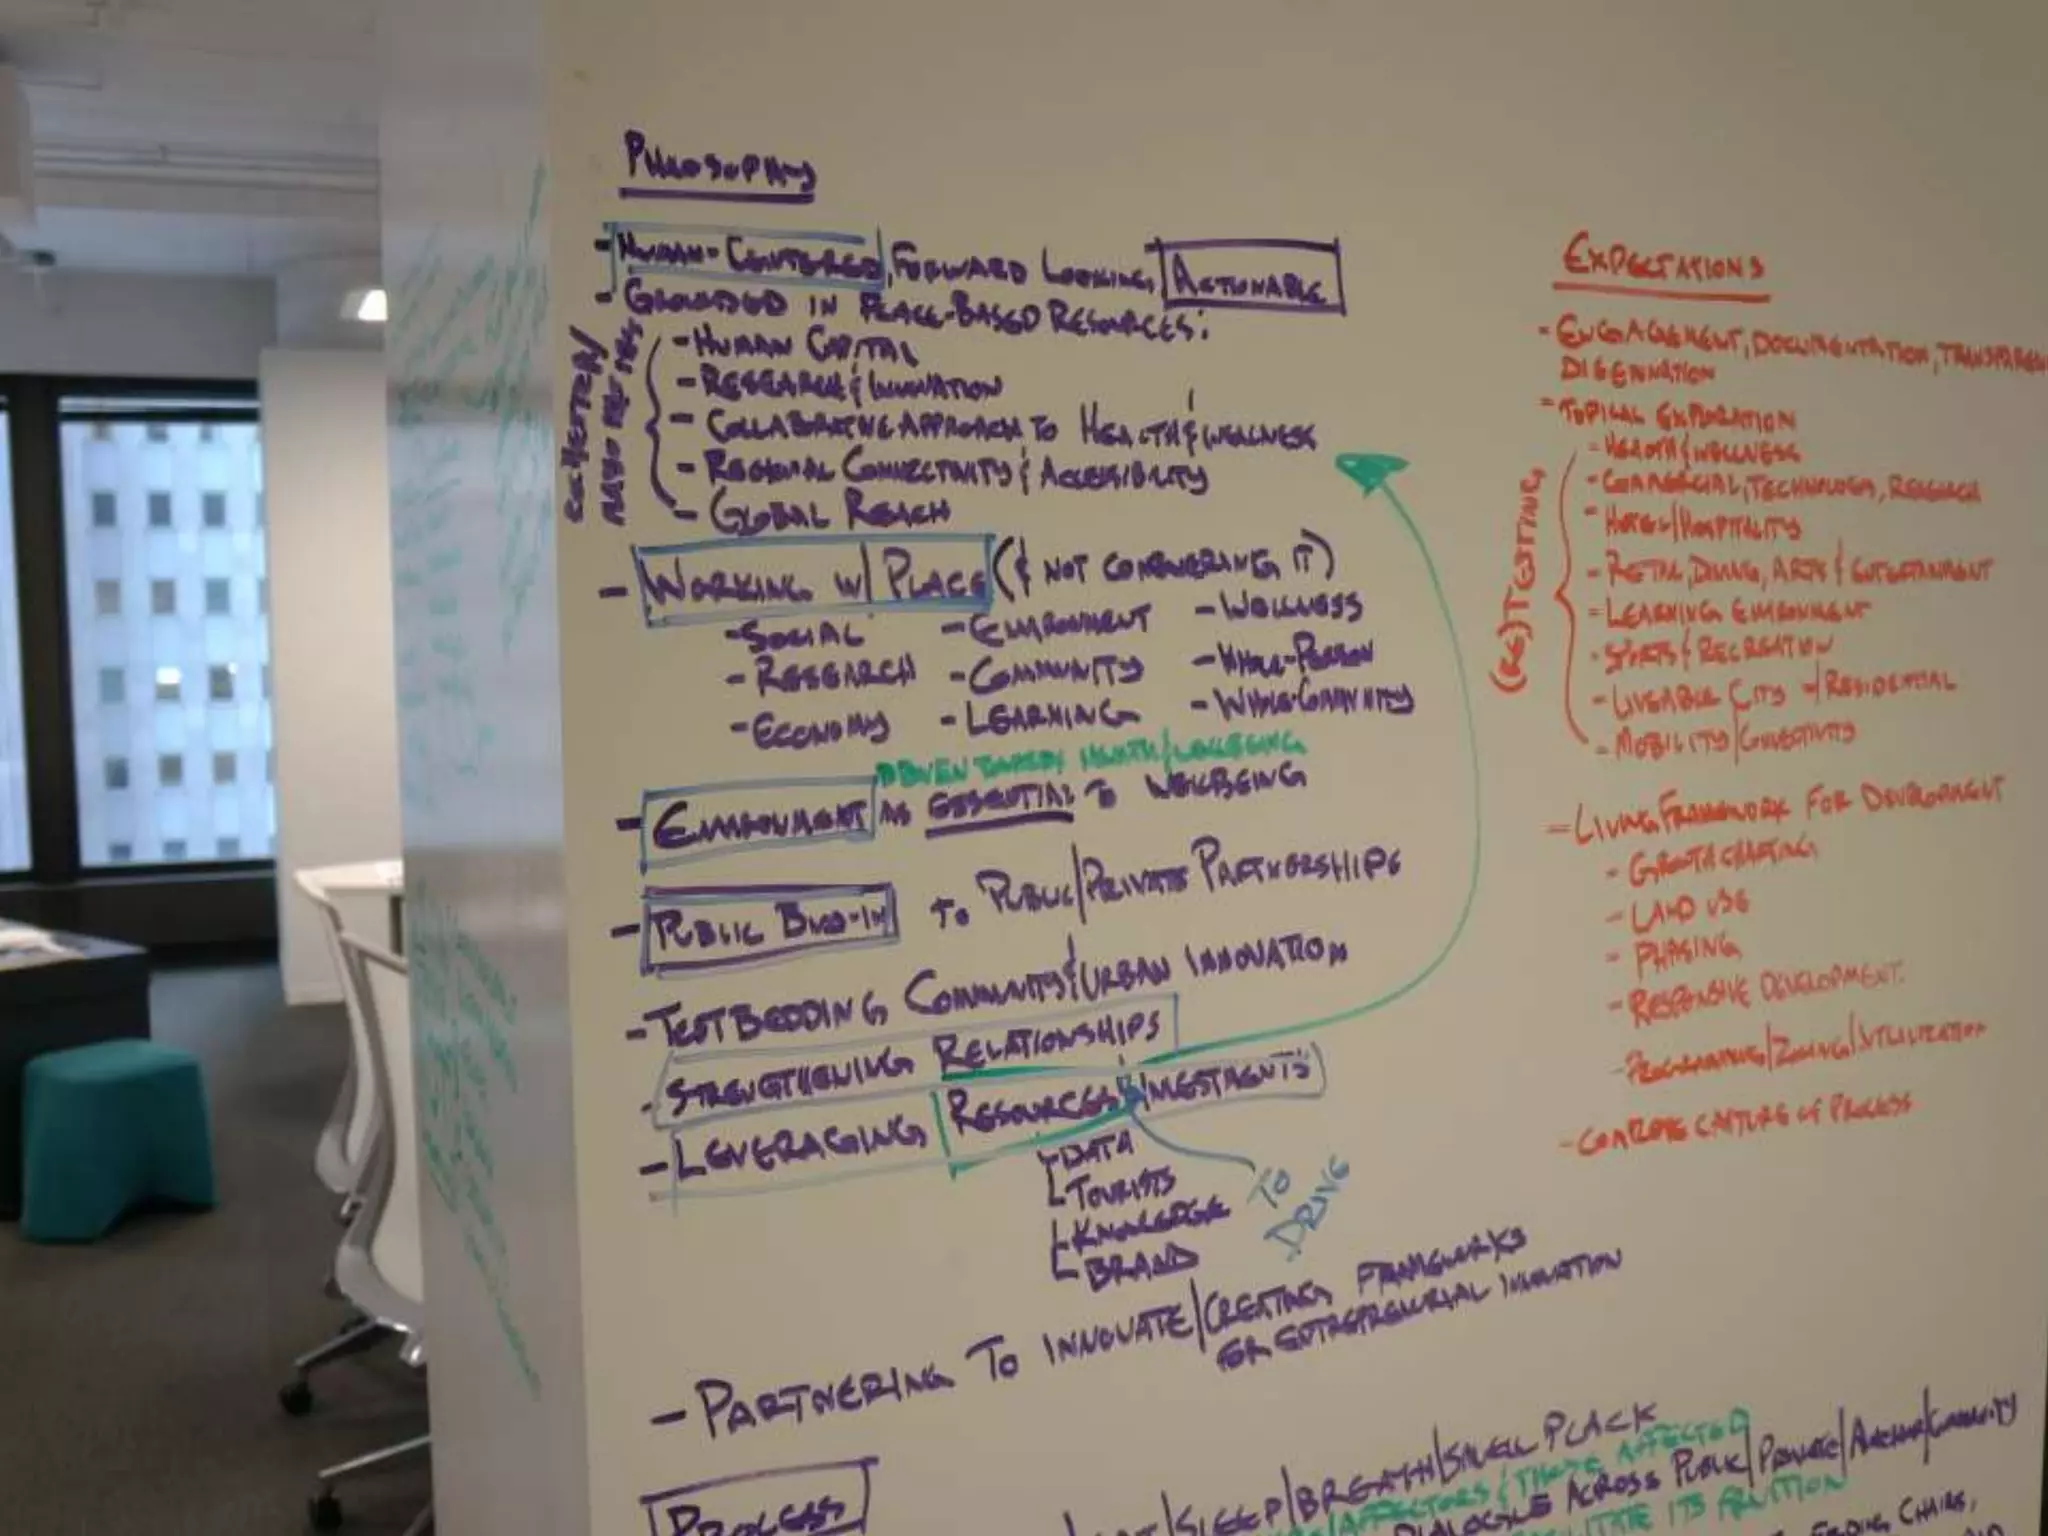 PHILOSOPHY
- HUMAN-CENTERED, FORWARD LOOKING, ACTIONABLE
- GROUNDED IN PLACE-BASED RESOURCES:
- HUMAN CAPITAL
- RESEARCH & INNOVATION
- COLLABORATIVE APPROACH TO HEALTH & WELLNESS
- REGIONAL CONNECTIVITY & ACCESSIBILITY
- GLOBAL REACH
- WORKING W/ PLACE (& NOT CONQUERING IT)
- SOCIAL - ENVIRONMENT - WELLNESS
- RESEARCH - COMMUNITY - WHOLE-PERSON
- ECONOMY - LEARNING - WHOLE-COMMUNITY
DRIVEN TOWARDS HEALTH/WELLBEING
- ENVIRONMENT AS ESSENTIAL TO WELLBEING
- PUBLIC BUY-IN TO PUBLIC/PRIVATE PARTNERSHIPS
- TESTBEDDING COMMUNITY & URBAN INNOVATION
- STRENGTHENING RELATIONSHIPS
- LEVERAGING RESOURCES & INVESTMENTS
- DATA
- TOURISTS
- KNOWLEDGE
- BRAND
TO
DRIVE
- PARTNERING TO INNOVATE/CREATING FRAMEWORKS
FOR ENTREPRENEURIAL INNOVATION
PROCESS
/SLEEP/BREATH/SMELL PLACE
/AFFECTORS & THOSE AFFECTED
DIALOGUE ACROSS PUBLIC/PRIVATE/ANCHOR/COMMUNITY
ITS FRUITION
CHAIRS,
EXPECTATIONS
- ENGAGEMENT, DOCUMENTATION, TRANSPAREN
DISSEMINATION
- TOPICAL EXPLORATION
(RE)TESTING
- HEALTH & WELLNESS
- COMMERCIAL, TECHNOLOGY, RESEARCH
- HOTEL/HOSPITALITY
- RETAIL, DINING, ARTS & ENTERTAINMENT
- LEARNING ENVIRONMENT
- SPORTS & RECREATION
- LIVEABLE CITY / RESIDENTIAL
- MOBILITY/CONNECTIVITY
- LIVING FRAMEWORK FOR DEVELOPMENT
- GROWTH CHARTING
- LAND USE
- PHASING
- RESPONSIVE DEVELOPMENT
- PROGRAMMING/ZONING/UTILIZATION
- CAPTURE OF PROCESS